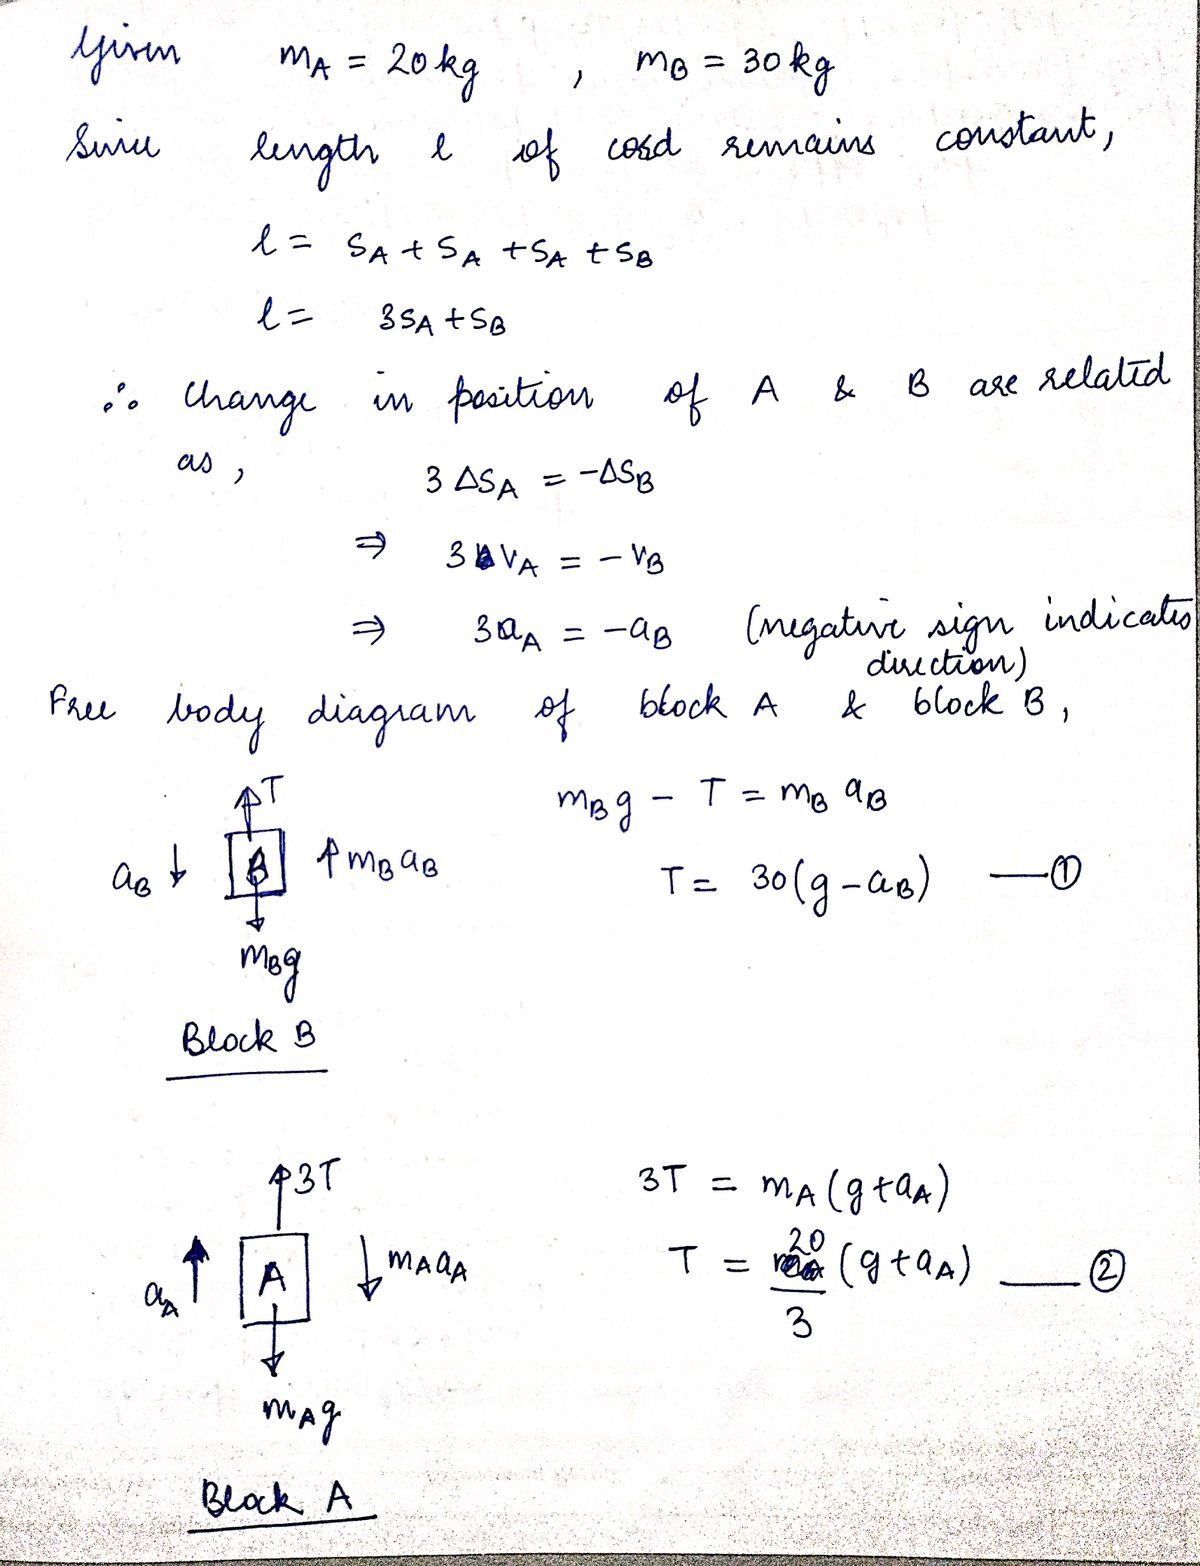 Given mA = 20 kg , mB = 30 kg
Since length l of cord remains constant,
l = SA + SA + SA + SB
l = 3SA + SB
∴ Change in position of A & B are related
as ,
3 ΔSA = -ΔSB
⇒ 3 VA = - VB
⇒ 3aA = -aB (negative sign indicates
direction)
Free body diagram of block A & block B ,
T
mBg - T = mB aB
aB ↓ B ↑ mB aB
T = 30(g - aB) —①
mBg
Block B
3T
3T = mA (g + aA)
T = 20/3 (g + aA) —②
aA ↑ A ↓ mA aA
mAg
Block A